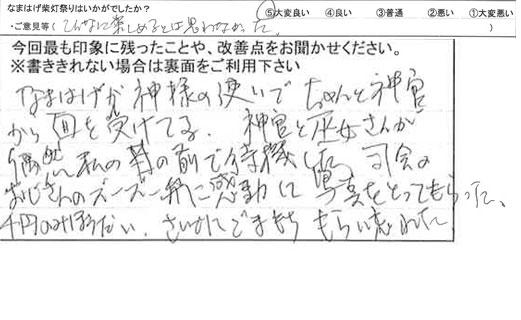 なまはげ柴灯祭りはいかがでしたか? ⑤大変良い ④良い ③普通 ②悪い ①大変悪い
・ご意見等( こんなに楽しめるとは思わなかった。 )
今回最も印象に残ったことや、改善点をお聞かせください。
※書ききれない場合は裏面をご利用下さい
なまはげが神様の使いで ちゃんと神官
から面を受けてる。 神官と巫女さんが
偶然、私の目の前で待機した。司会の
おじさんのズーズー弁に感動して 写真をとってもらった、
千円の